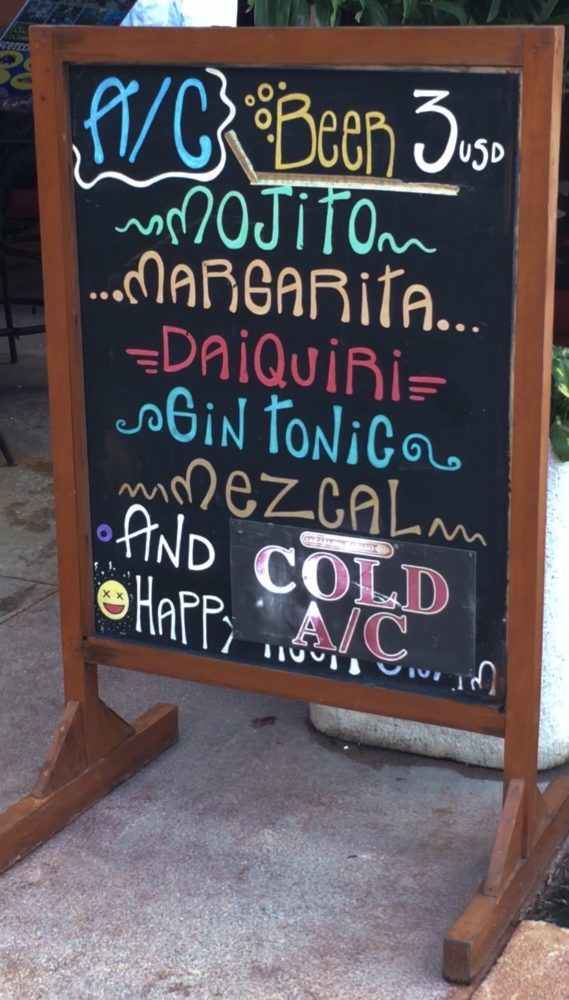 A/C Beer 3 USD
MOJITO
...MARGARITA...
DAIQUIRI
GIN TONIC
MEZCAL
AND
HAPPY
COLD
A/C